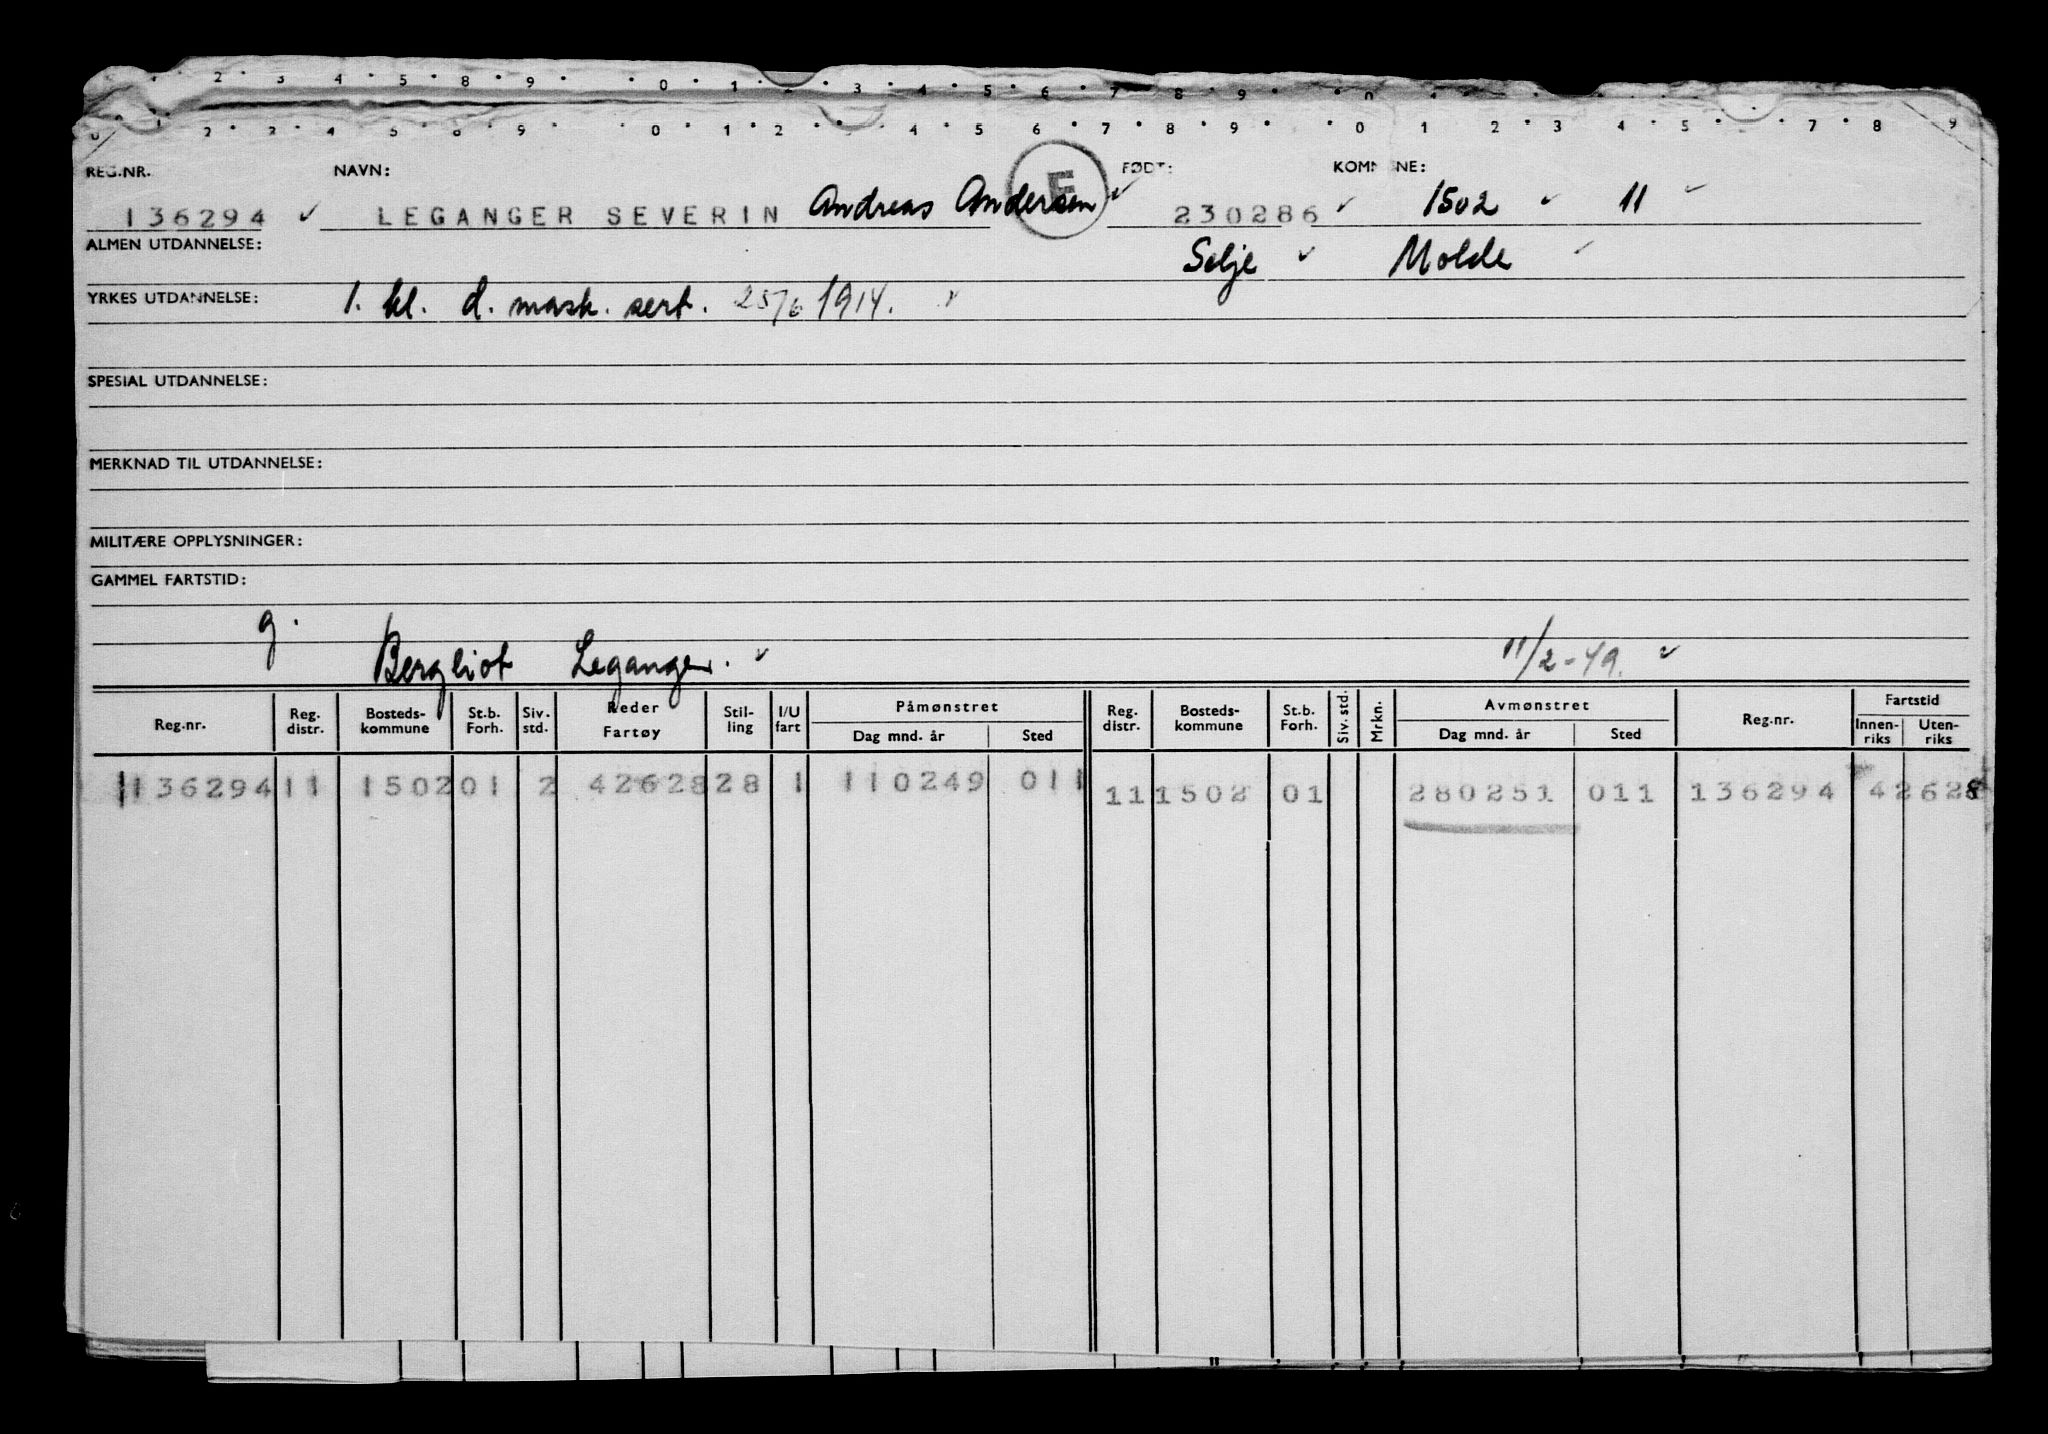 2 3 4 5 8 9 0 1 2 3 4 5 6 7 8 9 0 1 4 5 7 8 9
0 2 2 4 5 8 9 0 1 2 4 5 6 7 8 9 0 1 2 3 4 5 7 8
REG.NR. NAVN: E FØDT: KOMMUNE:
136294 ✓ LEGANGER SEVERIN Andreas Andersen ✓ 230286 ✓ 1502 ✓ 11 ✓
ALMEN UTDANNELSE: Selje ✓ Molde ✓
YRKES UTDANNELSE: 1. kl. d. mask. sert. 25/6 1914. ✓
SPESIAL UTDANNELSE:
MERKNAD TIL UTDANNELSE:
MILITÆRE OPPLYSNINGER:
GAMMEL FARTSTID:
g.
Bergliot Leganger. ✓ 11/2-49. ✓
Reg.nr. Reg. distr. Bosteds-kommune St.b. Forh. Siv. std. Reder Fartøy Stil-ling I/U fart Påmønstret Dag mnd. år Sted Reg. distr. Bosteds-kommune St.b. Forh. Siv. std. Mrkn. Avmønstret Dag mnd. år Sted Reg.nr. Fartstid Innen-riks Uten-riks
136294 11 1502 01 2 42628 28 1 110249 011 11 1502 01 280251 011 136294 42628